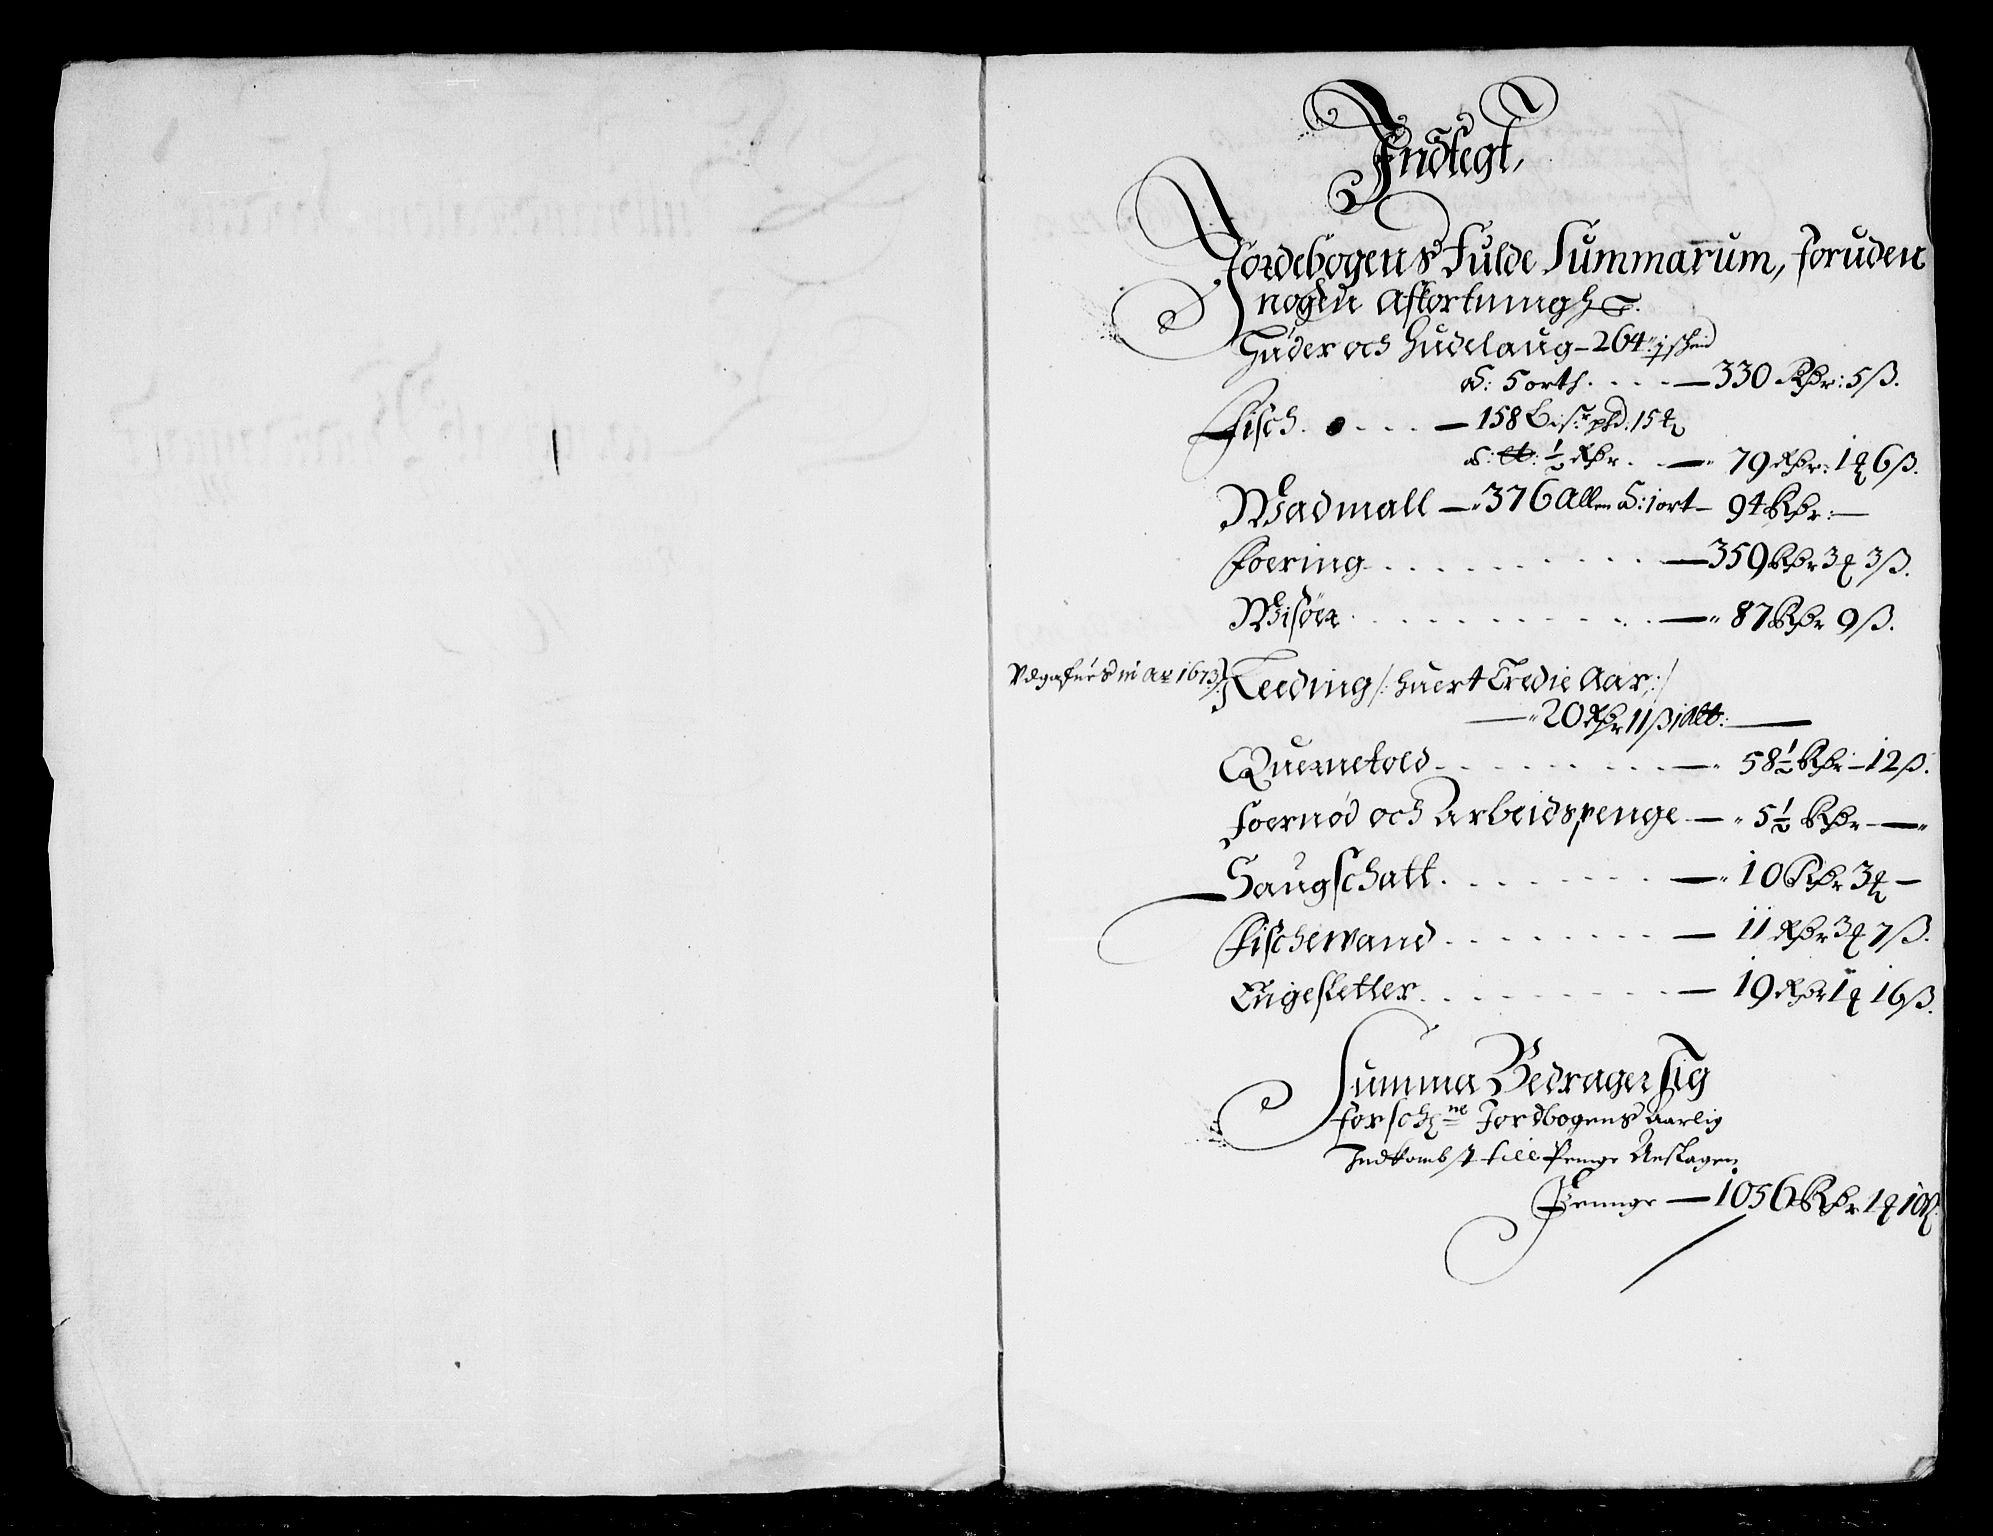 Indtegt,
Jordebogens Fulde Summarum, foruden
nogen Afkortning
Huder och Hudelaug – 264
a: 5 orth. . . . — 330 Rdr: 5 ß.
Fisch. . . . — 158 pd. 15
a: ½ Rdr. . — 79 Rdr: 1 6 ß.
Wadmall — 376 Allen a: 1 ort – 94 Rdr: —
Foering . . . . . — 359 Rdr 3 3 ß.
Wisøer . . . . . — 87 Rdr 9 ß.
Udgafues in Ao 1673 Leeding /: huert Tredie Aar :/
— 20 Rdr 11 ß —
Quernetold . . . . . — 58½ Rdr – 12 ß.
Foernød och Arbeidspenge — 5½ Rdr —
Saugschatt . . . . . — 10 Rdr 3 —
Fischewand . . . . . — 11 Rdr 3 7 ß.
Engesletter . . . . . — 19 Rdr 1 16 ß.
Summa Bedrager sig
forschne Jordbogens Aarlig
Indkombst till Penge Anslagen
Penge — 1056 Rdr 1 10 ß.